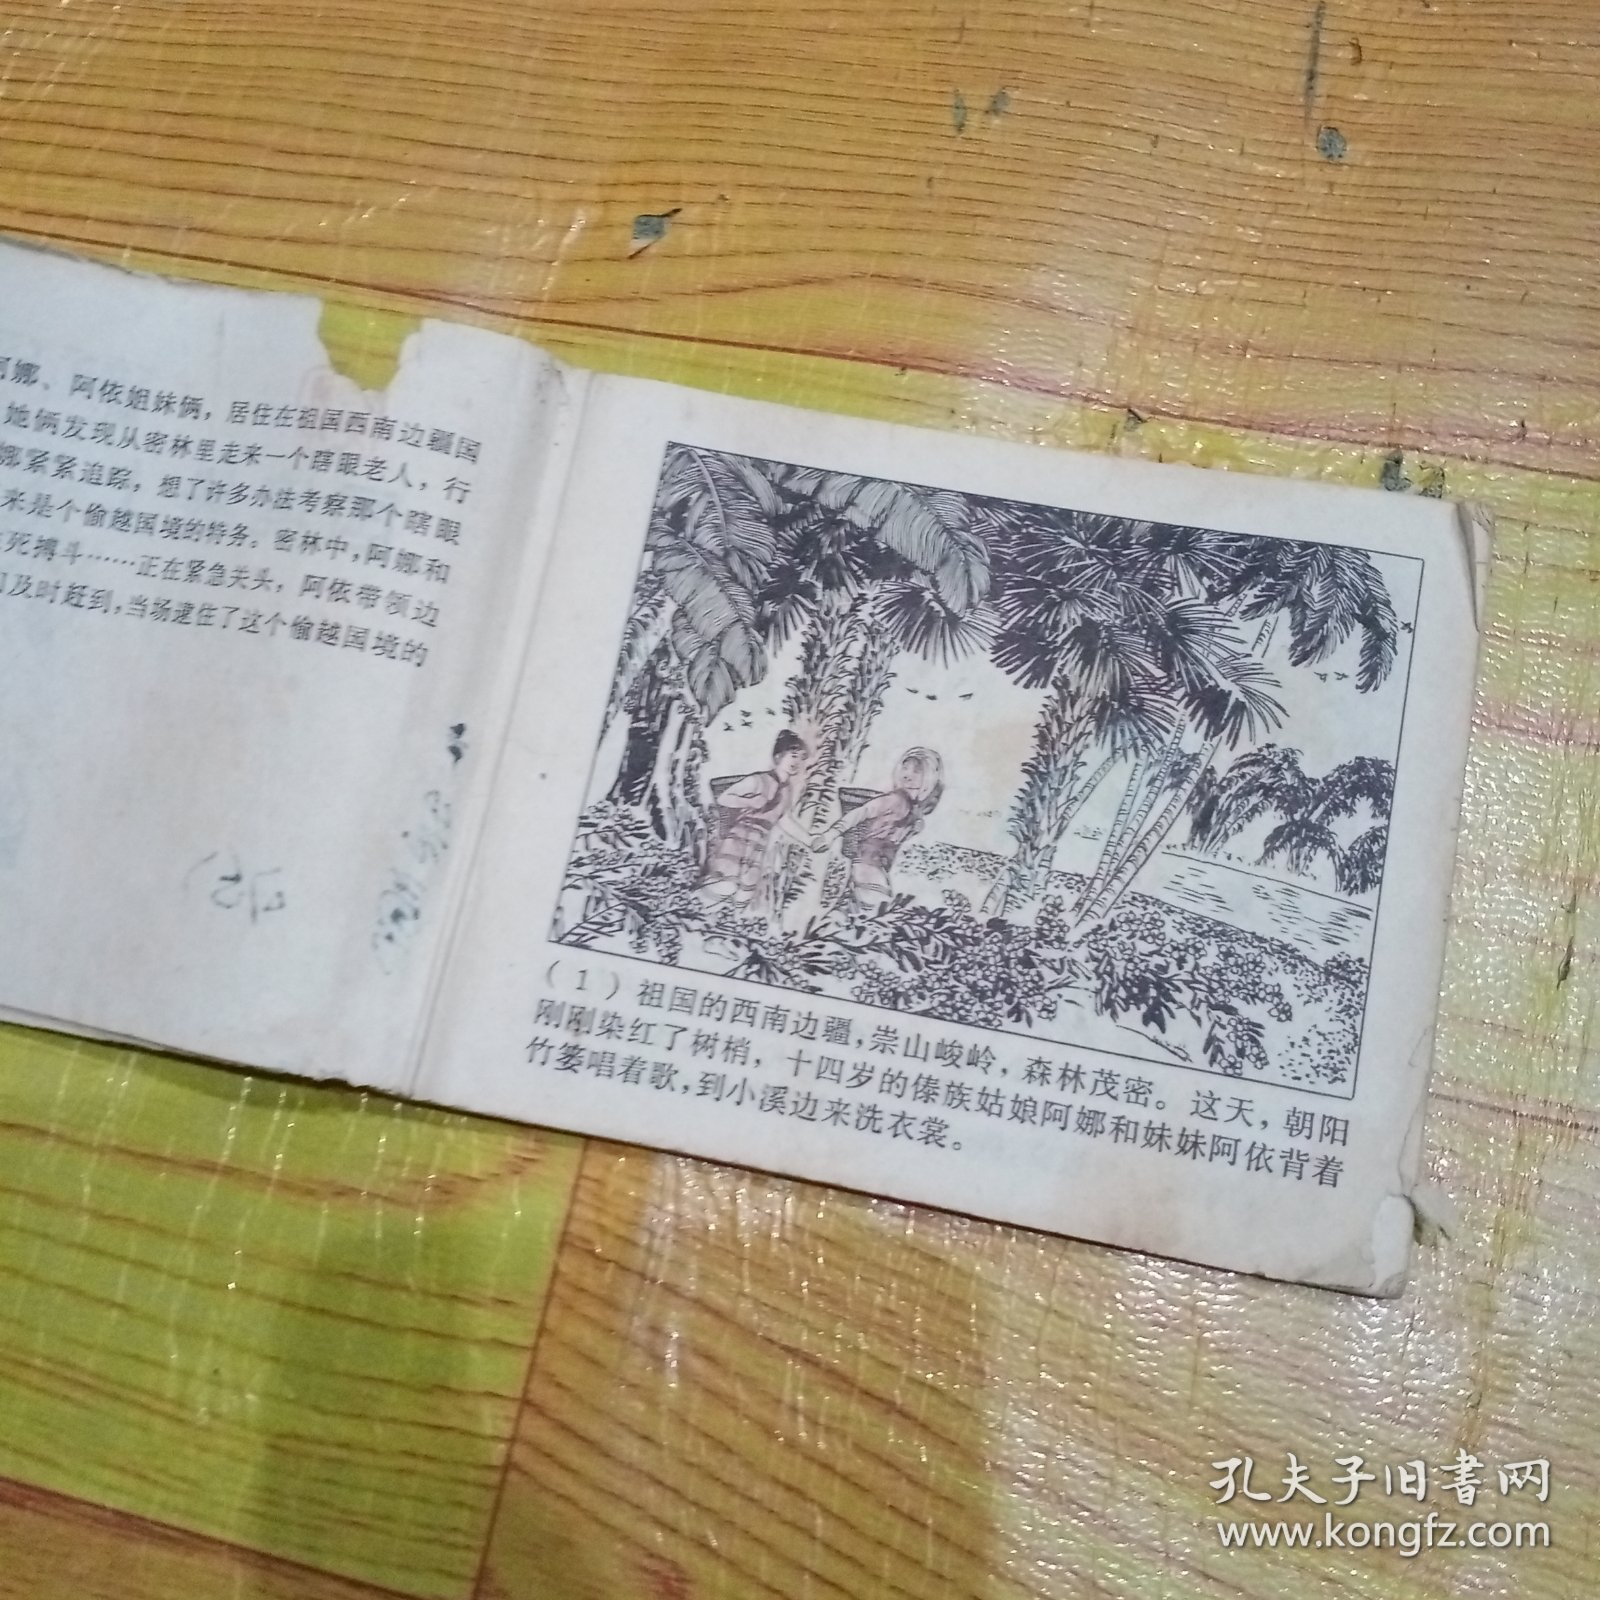 娜、阿依姐妹俩，居住在祖国西南边疆国
她俩发现从密林里走来一个瞎眼老人，行
娜紧紧追踪，想了许多办法考察那个瞎眼
来是个偷越国境的特务。密林中，阿娜和
死搏斗……正在紧急关头，阿依带领边
及时赶到，当场逮住了这个偷越国境的
（1）祖国的西南边疆，崇山峻岭，森林茂密。这天，朝阳
刚刚染红了树梢，十四岁的傣族姑娘阿娜和妹妹阿依背着
竹篓唱着歌，到小溪边来洗衣裳。
孔夫子旧书网
www.kongfz.com